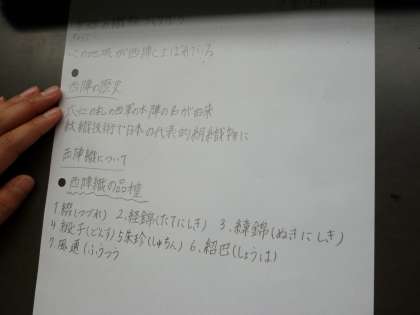 この地域が西陣とよばれている
●
西陣の歴史
応仁の乱の西軍の本陣の名が由来
紋織技術で日本の代表的絹織物に
西陣織について
● 西陣織の品種
1.綴(つづれ) 2.経錦(たてにしき) 3.緯錦(ぬきにしき)
4.緞子(どんす) 5.朱珍(しゅちん) 6.紹巴(しょうは)
7.風通(ふうつう)